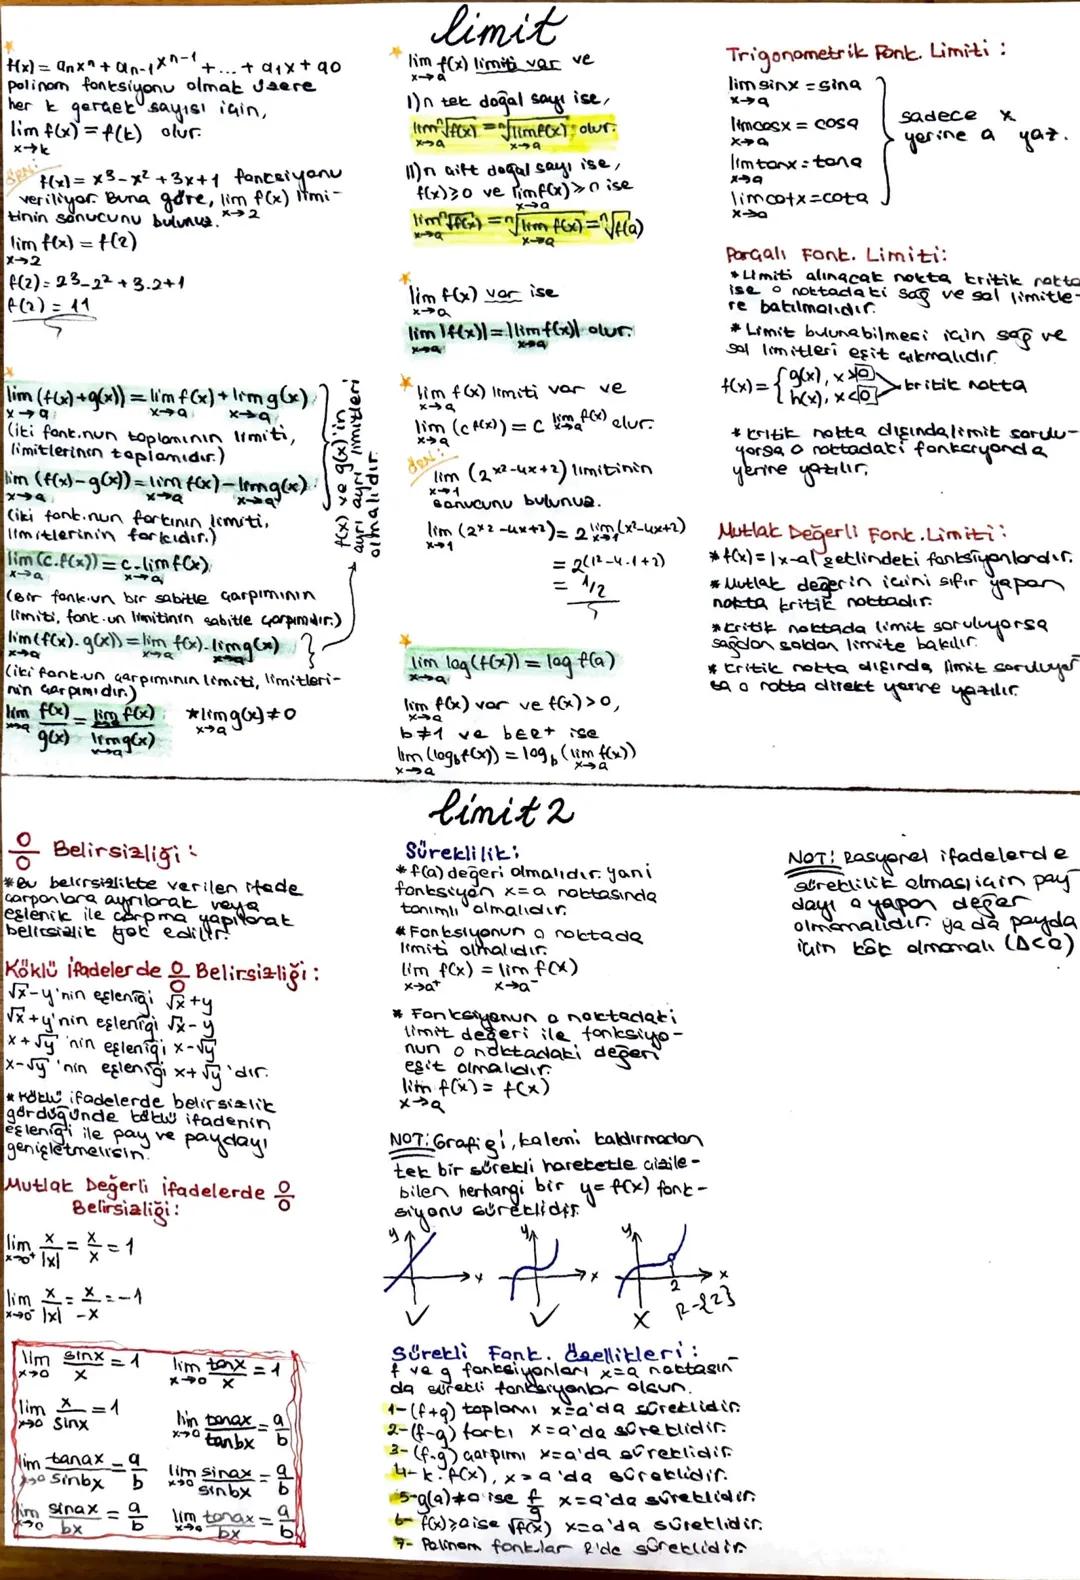 limit
f(x) = aₙxⁿ + aₙ₋₁xⁿ⁻¹ + ... + a₁x + a₀
polinom fonksiyonu olmak üzere
her k gerçek sayısı için,
lim f(x) = f(k) olur.
x→k
f(x) = x³-x²+3x+1 fonksiyonu
veriliyor. Buna göre, lim f(x) limi-
x→2
tinin sonucunu bulunuz.
lim f(x) = f(2)
x→2
f(2) = 2³-2²+3.2+1
f(2) = 11
lim (f(x)+g(x)) = lim f(x) + lim g(x)
x→a x→a x→a
(iki fonk.nun toplamının limiti,
limitlerinin toplamıdır.)
lim (f(x)-g(x)) = lim f(x) - lim g(x)
x→a x→a x→a
(iki fonk.nun farkının limiti,
limitlerinin farkıdır.)
lim (c.f(x)) = c.lim f(x)
x→a x→a
(Bir fonk.un bir sabitle çarpımının
limiti, fonk.un limitinin sabitle çarpımıdır.)
lim (f(x).g(x)) = lim f(x).lim g(x)
x→a x→a x→a
(iki fonk.un çarpımının limiti, limitleri-
nin çarpımıdır.)
lim f(x)/g(x) = lim f(x)/lim g(x) *lim g(x)≠0
x→a x→a x→a
f(x) ve g(x)'in
ayrı ayrı limitleri
olmalıdır.
lim f(x) limiti var ve
x→a
I) n tek doğal sayı ise,
lim ⁿ√f(x) = ⁿ√lim f(x) olur.
x→a x→a
II) n çift doğal sayı ise,
f(x)≥0 ve lim f(x)≥0 ise
x→a
lim ⁿ√f(x) = ⁿ√lim f(x) = ⁿ√f(a)
x→a x→a
lim f(x) var ise
x→a
lim |f(x)| = |lim f(x)| olur.
x→a x→a
lim f(x) limiti var ve
x→a
lim (c^f(x)) = c^(lim f(x)) olur.
x→a x→a
lim (2^(x²-4x+2)) limitinin
x→1
sonucunu bulunuz.
lim (2^(x²-4x+2)) = 2^(lim (x²-4x+2))
x→1 x→1
= 2^(1²-4.1+2)
= 1/2
lim log(f(x)) = log f(a)
x→a
lim f(x) var ve f(x)>0,
x→a
b≠1 ve b∈R+ ise
lim (log_b f(x)) = log_b (lim f(x))
x→a x→a
Trigonometrik Fonk. Limiti:
lim sinx = sina
x→a
lim cosx = cosa
x→a
lim tanx = tana
x→a
lim cotx = cota
x→a
sadece x
yerine a yaz.
Parçalı Fonk. Limiti:
*Limiti alınacak nokta kritik nokta
ise o noktadaki sağ ve sol limitle-
re bakılmalıdır.
*Limit bulunabilmesi için sağ ve
sol limitleri eşit çıkmalıdır.
f(x) = { g(x), x≥a
h(x), x<a
kritik nokta
*kritik nokta dışında limit sorulu-
yorsa o noktadaki fonksiyonda
yerine yazılır.
Mutlak Değerli Fonk. Limiti:
*f(x) = |x-a| şeklindeki fonksiyonlardır.
*Mutlak değerin içini sıfır yapan
nokta kritik noktadır.
*Kritik noktada limit soruluyorsa
sağdan soldan limite bakılır.
*Kritik nokta dışında limit soruluyor
sa o nokta direkt yerine yazılır.
limit 2
0/0 Belirsizliği:
*Bu belirsizlikte verilen ifade
çarpanlara ayrılarak veya
eşlenik ile çarpma yapılarak
belirsizlik yok edilir.
Köklü ifadelerde 0/0 Belirsizliği:
√x-y'nin eşleniği √x+y
√x+y'nin eşleniği √x-y
x+√y'nin eşleniği x-√y
x-√y'nin eşleniği x+√y'dır.
*Köklü ifadelerde belirsizlik
gördüğünde köklü ifadenin
eşleniği ile pay ve paydayı
genişletmelisin.
Mutlak Değerli ifadelerde 0/0
Belirsizliği:
lim x/|x| = x/x = 1
x→0⁺
lim x/|x| = x/-x = -1
x→0⁻
lim sinx/x = 1 lim tanx/x = 1
x→0 x→0
lim x/sinx = 1 lim tanax/tanbx = a/b
x→0 x→0
lim tanax/sinbx = a/b lim sinax/sinbx = a/b
x→0 x→0
lim sinax/bx = a/b lim tanax/bx = a/b
x→0 x→0
Süreklilik:
*f(a) değeri olmalıdır. yani
fonksiyon x=a noktasında
tanımlı olmalıdır.
*Fonksiyonun o noktada
limiti olmalıdır.
lim f(x) = lim f(x)
x→a⁺ x→a⁻
*Fonksiyonun o noktadaki
limit değeri ile fonksiyo-
nun o noktadaki değeri
eşit olmalıdır.
lim f(x) = f(x)
x→a
NOT: Grafiği, kalemi kaldırmadan
tek bir sürekli hareketle çizile-
bilen herhangi bir y=f(x) fonk-
siyonu süreklidir.
y x y x y 2 x
R-{2}
Sürekli Fonk. Özellikleri:
f ve g fonksiyonları x=a noktasın-
da sürekli fonksiyonlar olsun.
1-(f+g) toplamı x=a'da süreklidir.
2-(f-g) farkı x=a'da süreklidir.
3-(f.g) çarpımı x=a'da süreklidir.
4-k.f(x), x=a'da süreklidir.
5-g(a)≠0 ise f/g x=a'da süreklidir.
6-f(x)≥0 ise √f(x) x=a'da süreklidir.
7-Polinom fonk.lar R'de süreklidir.
NOT: Rasyonel ifadelerde
süreklilik olması için pay
dayı 0 yapan değer
olmamalıdır. ya da payda
için kök olmamalı (Δ<0)